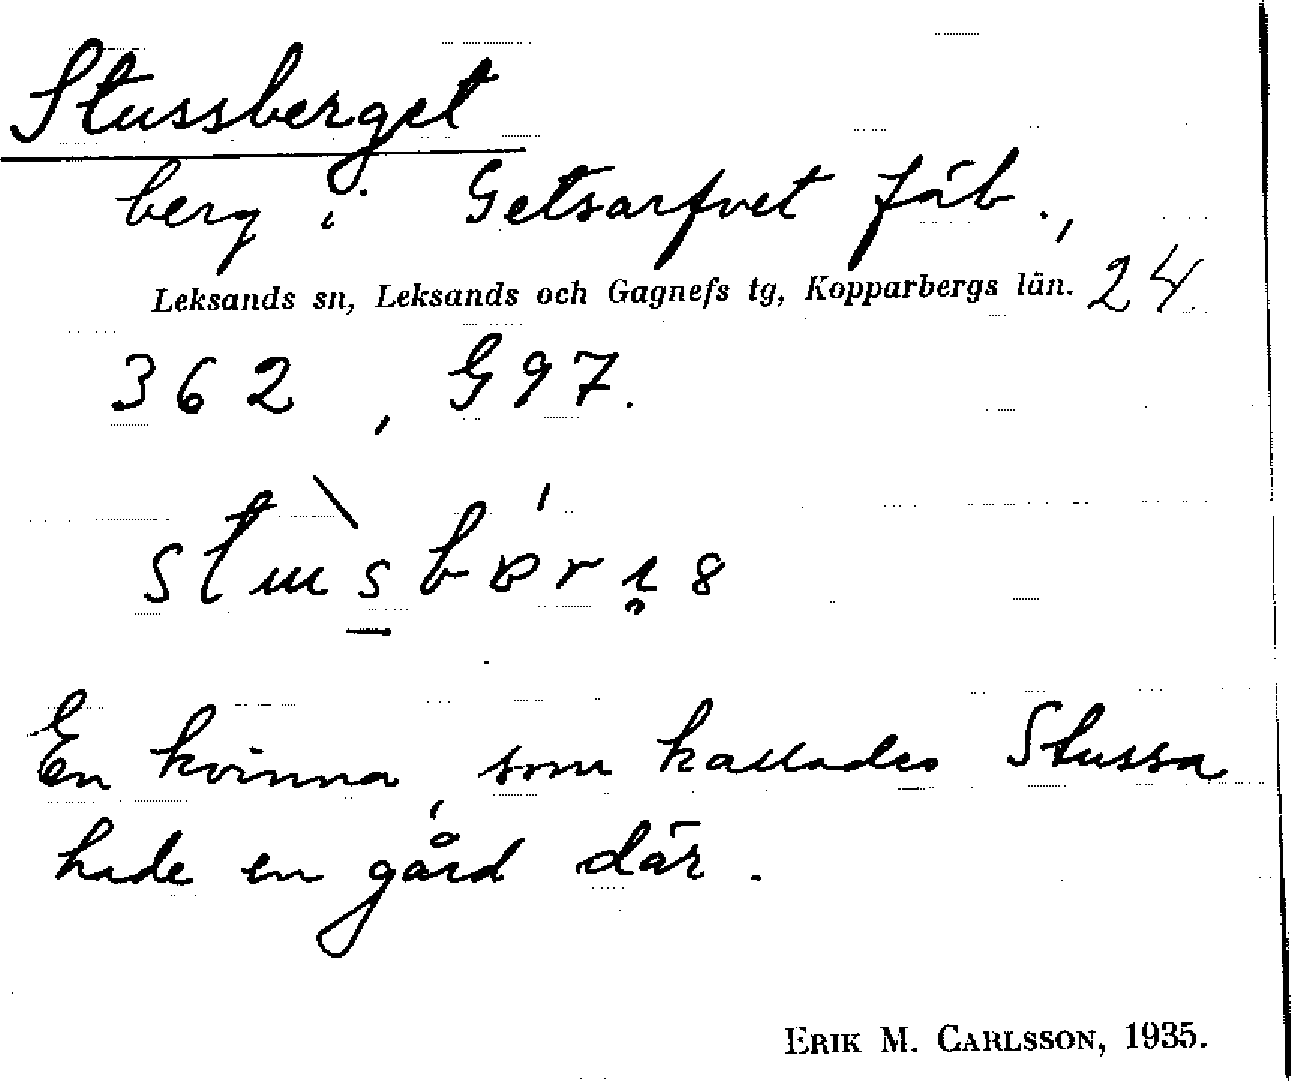 Stussberget
berg i Getsarfvet fäb.,
Leksands sn, Leksands och Gagnefs tg, Kopparbergs län. 24.
362, G97.
En kvinna, som kallades Stussa
hade en gård där.
ERIK M. CARLSSON, 1935.